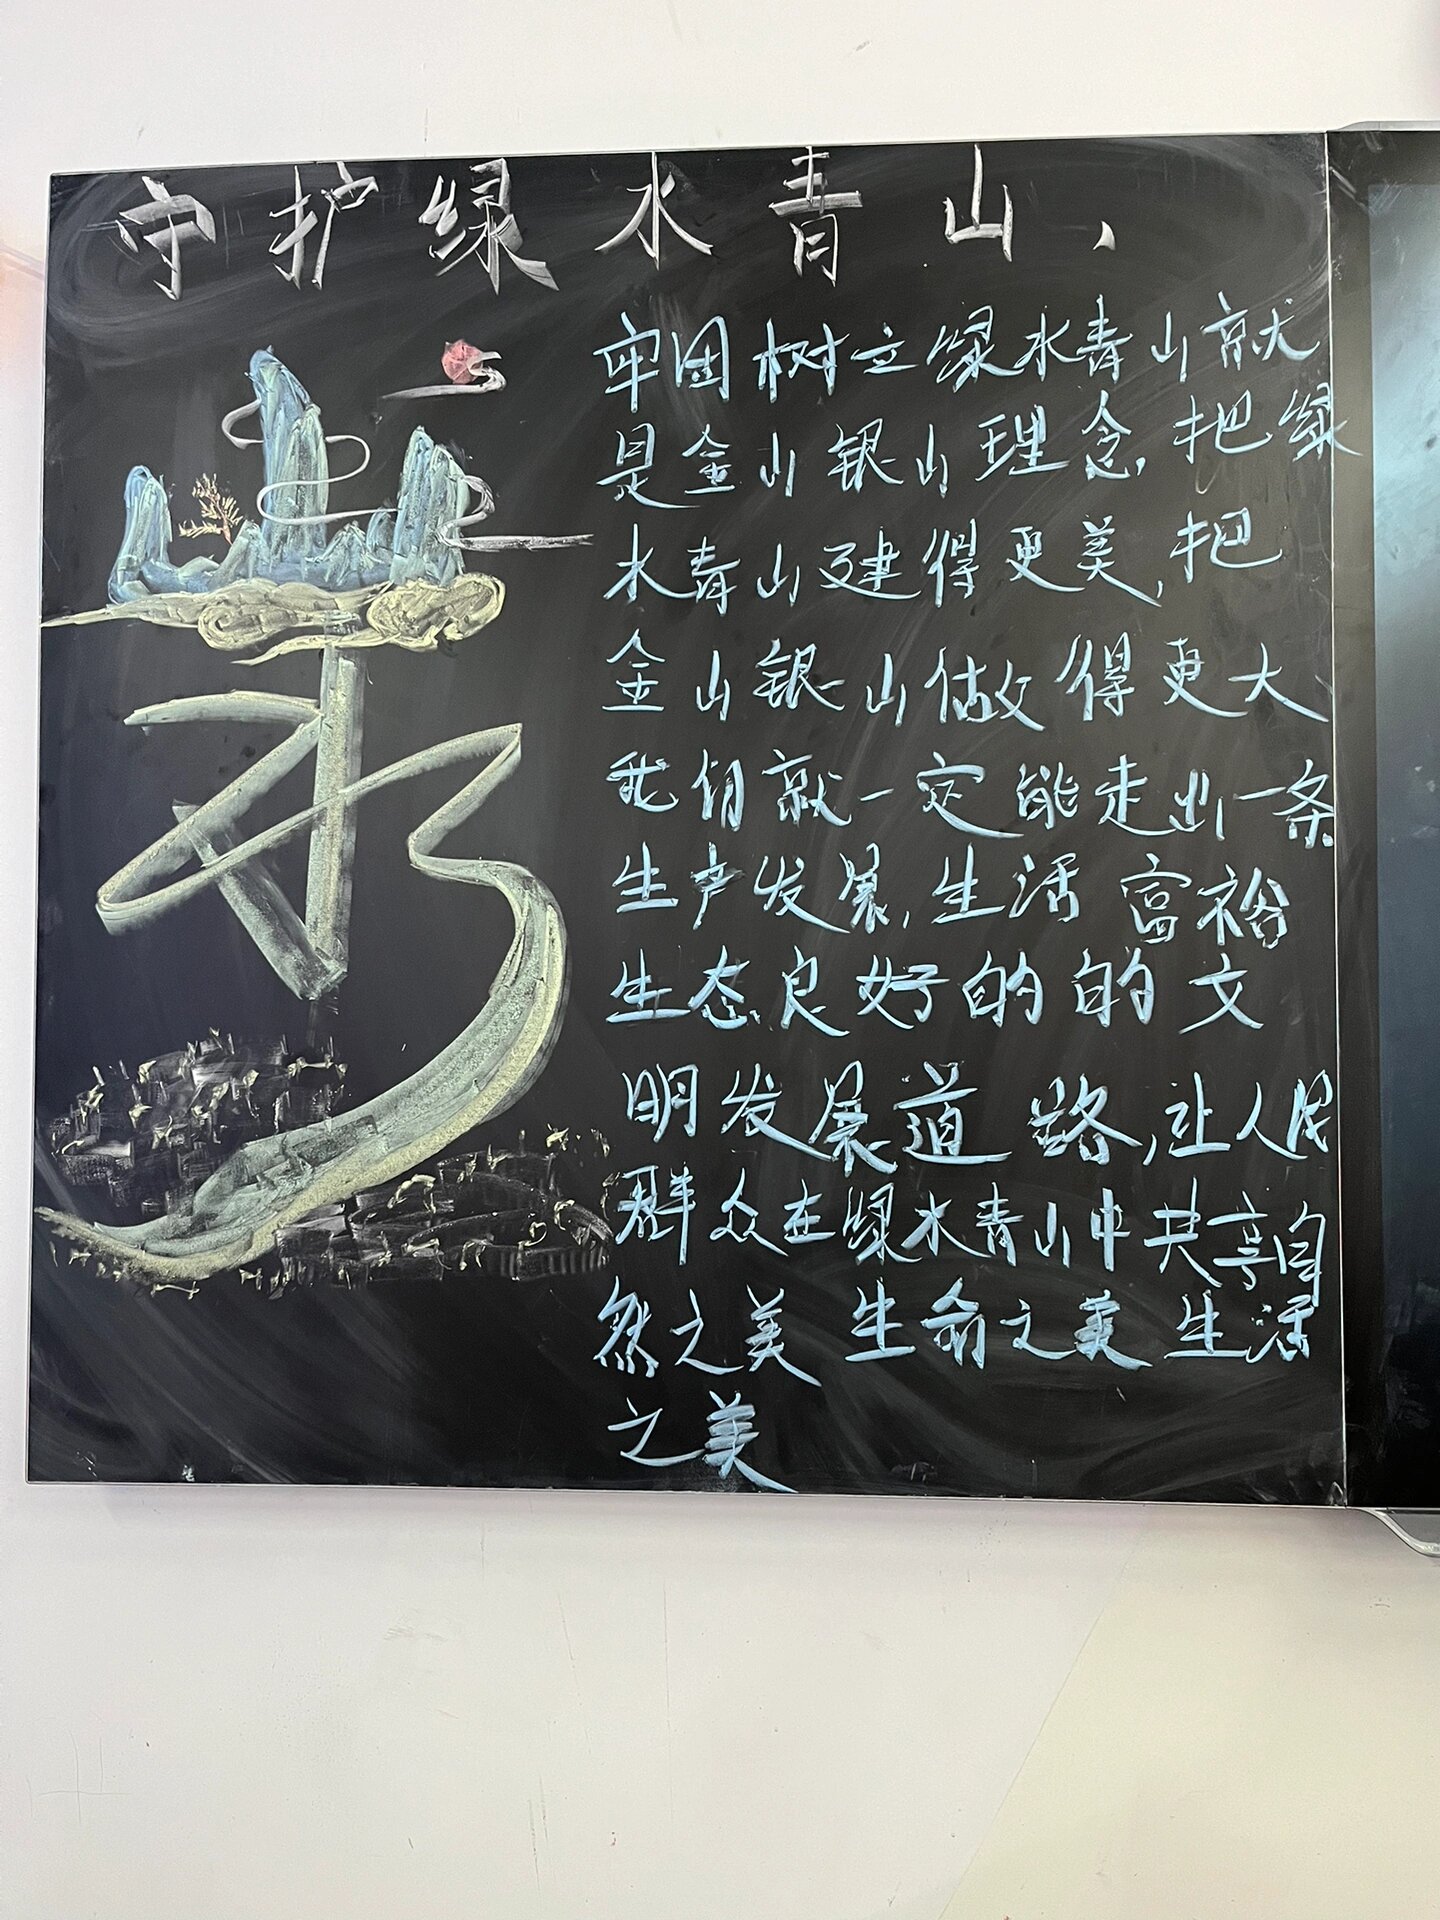 守护绿水青山、
牢固树立绿水青山就
是金山银山理念,把绿
水青山建得更美,把
金山银山做得更大
我们就一定能走出一条
生产发展,生活富裕
生态良好的的文
明发展道路,让人民
群众在绿水青山中共享自
然之美 生命之美 生活
之美